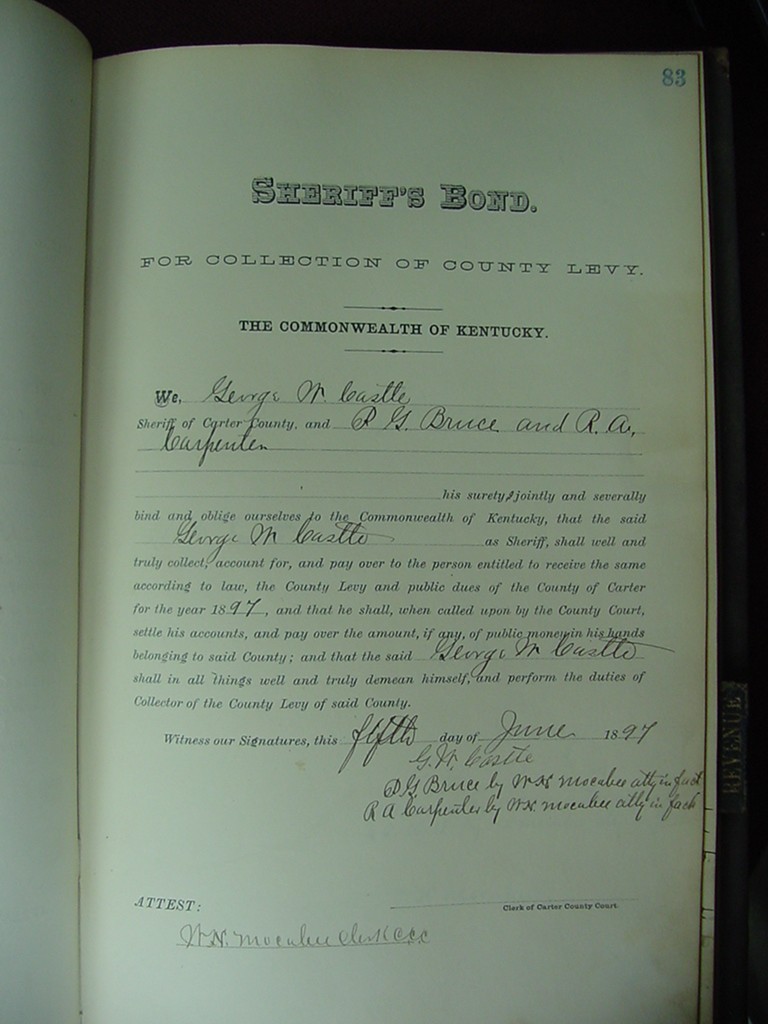 83
SHERIFF'S BOND.
FOR COLLECTION OF COUNTY LEVY.
THE COMMONWEALTH OF KENTUCKY.
We, George W. Castle
Sheriff of Carter County, and P G. Bruce and R. A.
Carpenter
his surety, jointly and severally
bind and oblige ourselves to the Commonwealth of Kentucky, that the said
George W Castle as Sheriff, shall well and
truly collect, account for, and pay over to the person entitled to receive the same
according to law, the County Levy and public dues of the County of Carter
for the year 1897, and that he shall, when called upon by the County Court,
settle his accounts, and pay over the amount, if any, of public money in his hands
belonging to said County; and that the said George W Castle
shall in all things well and truly demean himself, and perform the duties of
Collector of the County Levy of said County.
Witness our Signatures, this fifth day of June 1897
G. W. Castle
P G Bruce by W.N. Mocabee atty in fact
R A Carpenter by W.N. Mocabee atty in fact
ATTEST:
Clerk of Carter County Court.
W.N. Mocabee Clerk C.C.C.
REVENUE